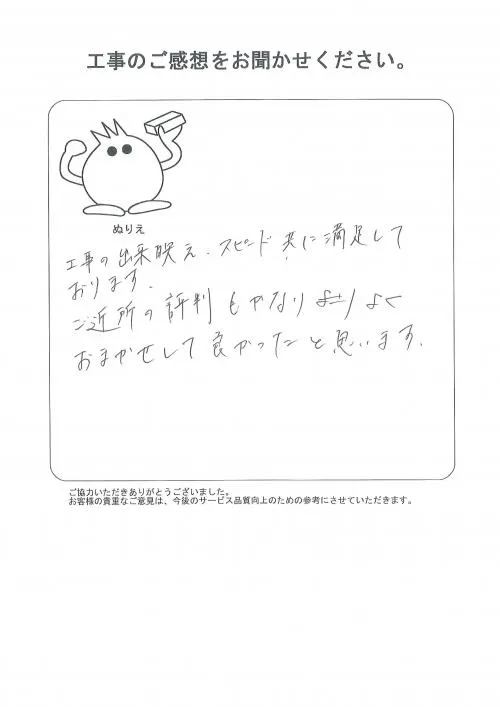 工事のご感想をお聞かせください。
ぬりえ
工事の出来映え、スピード共に満足して
おります。
ご近所の評判もかなり よく
おまかせして良かったと思います。
ご協力いただきありがとうございました。
お客様の貴重なご意見は、今後のサービス品質向上のための参考にさせていただきます。